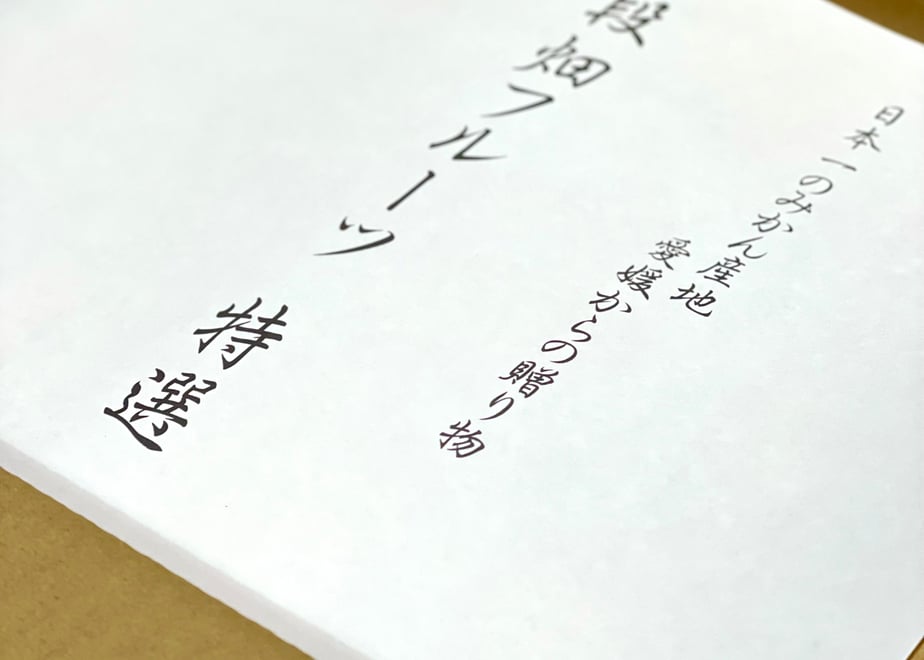 日本一のみかん産地
愛媛からの贈り物
段畑フルーツ 特選